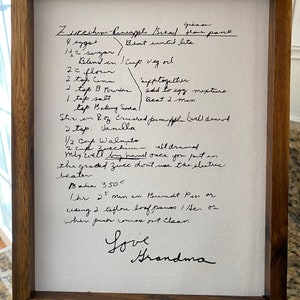 Zucchini-Pineapple Bread grease
flour pans
4 eggs Beat until lite
1½ c sugar
Blend in 1 cup veg oil
2 c flour
2 tsp Cinn Sift together
2 tsp B Powder add to egg mixture
1 tsp salt Beat 2 min
tsp Baking Soda
Stir in 8 oz crushed pineapple well drained
2 tsp. Vanilla
½ cup Walnuts
2 cup zucchini - well drained
Mix well by hand once you put in
the grated zucc dont use the electric
beater
Bake 350°
1 hr 25 min in Bundt Pan or
using 2 teflon loaf pans 1 hr. or
when pick comes out clean
Love
Grandma